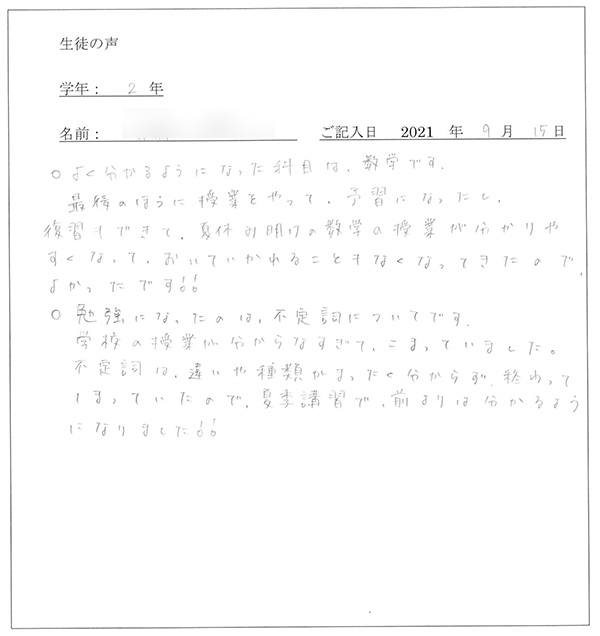 生徒の声
学年： 2 年
名前：
ご記入日 2021 年 9 月 15 日
○ よく分かるようになった科目は、数学です。
最後のほうに授業をやって、予習になったし、
復習もできて、夏休み明けの数学の授業が分かりや
すくなって、おいていかれることもなくなってきたので、
よかったです!!
○ 勉強になったのは、不定詞についてです。
学校の授業が分からなすぎて、こまっていました。
不定詞は、違いや種類がまったく分からず、終わって
しまっていたので、夏季講習で、前よりは分かるよう
になりました!!